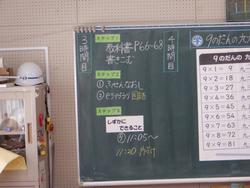 3時間目
ステップ1
教科書P66-68
書きこむ
ステップ2
①さいしんなおし
②eライブラリ 国語
しずかに
できること
⑦11:05〜
11:30
4時間目
9のだんの大
9のだんの
9×1=9
9×2=18
9×3=27
9×4=36
9×5=45
9×6=54
9×7=63
9×8=72
9×9=81